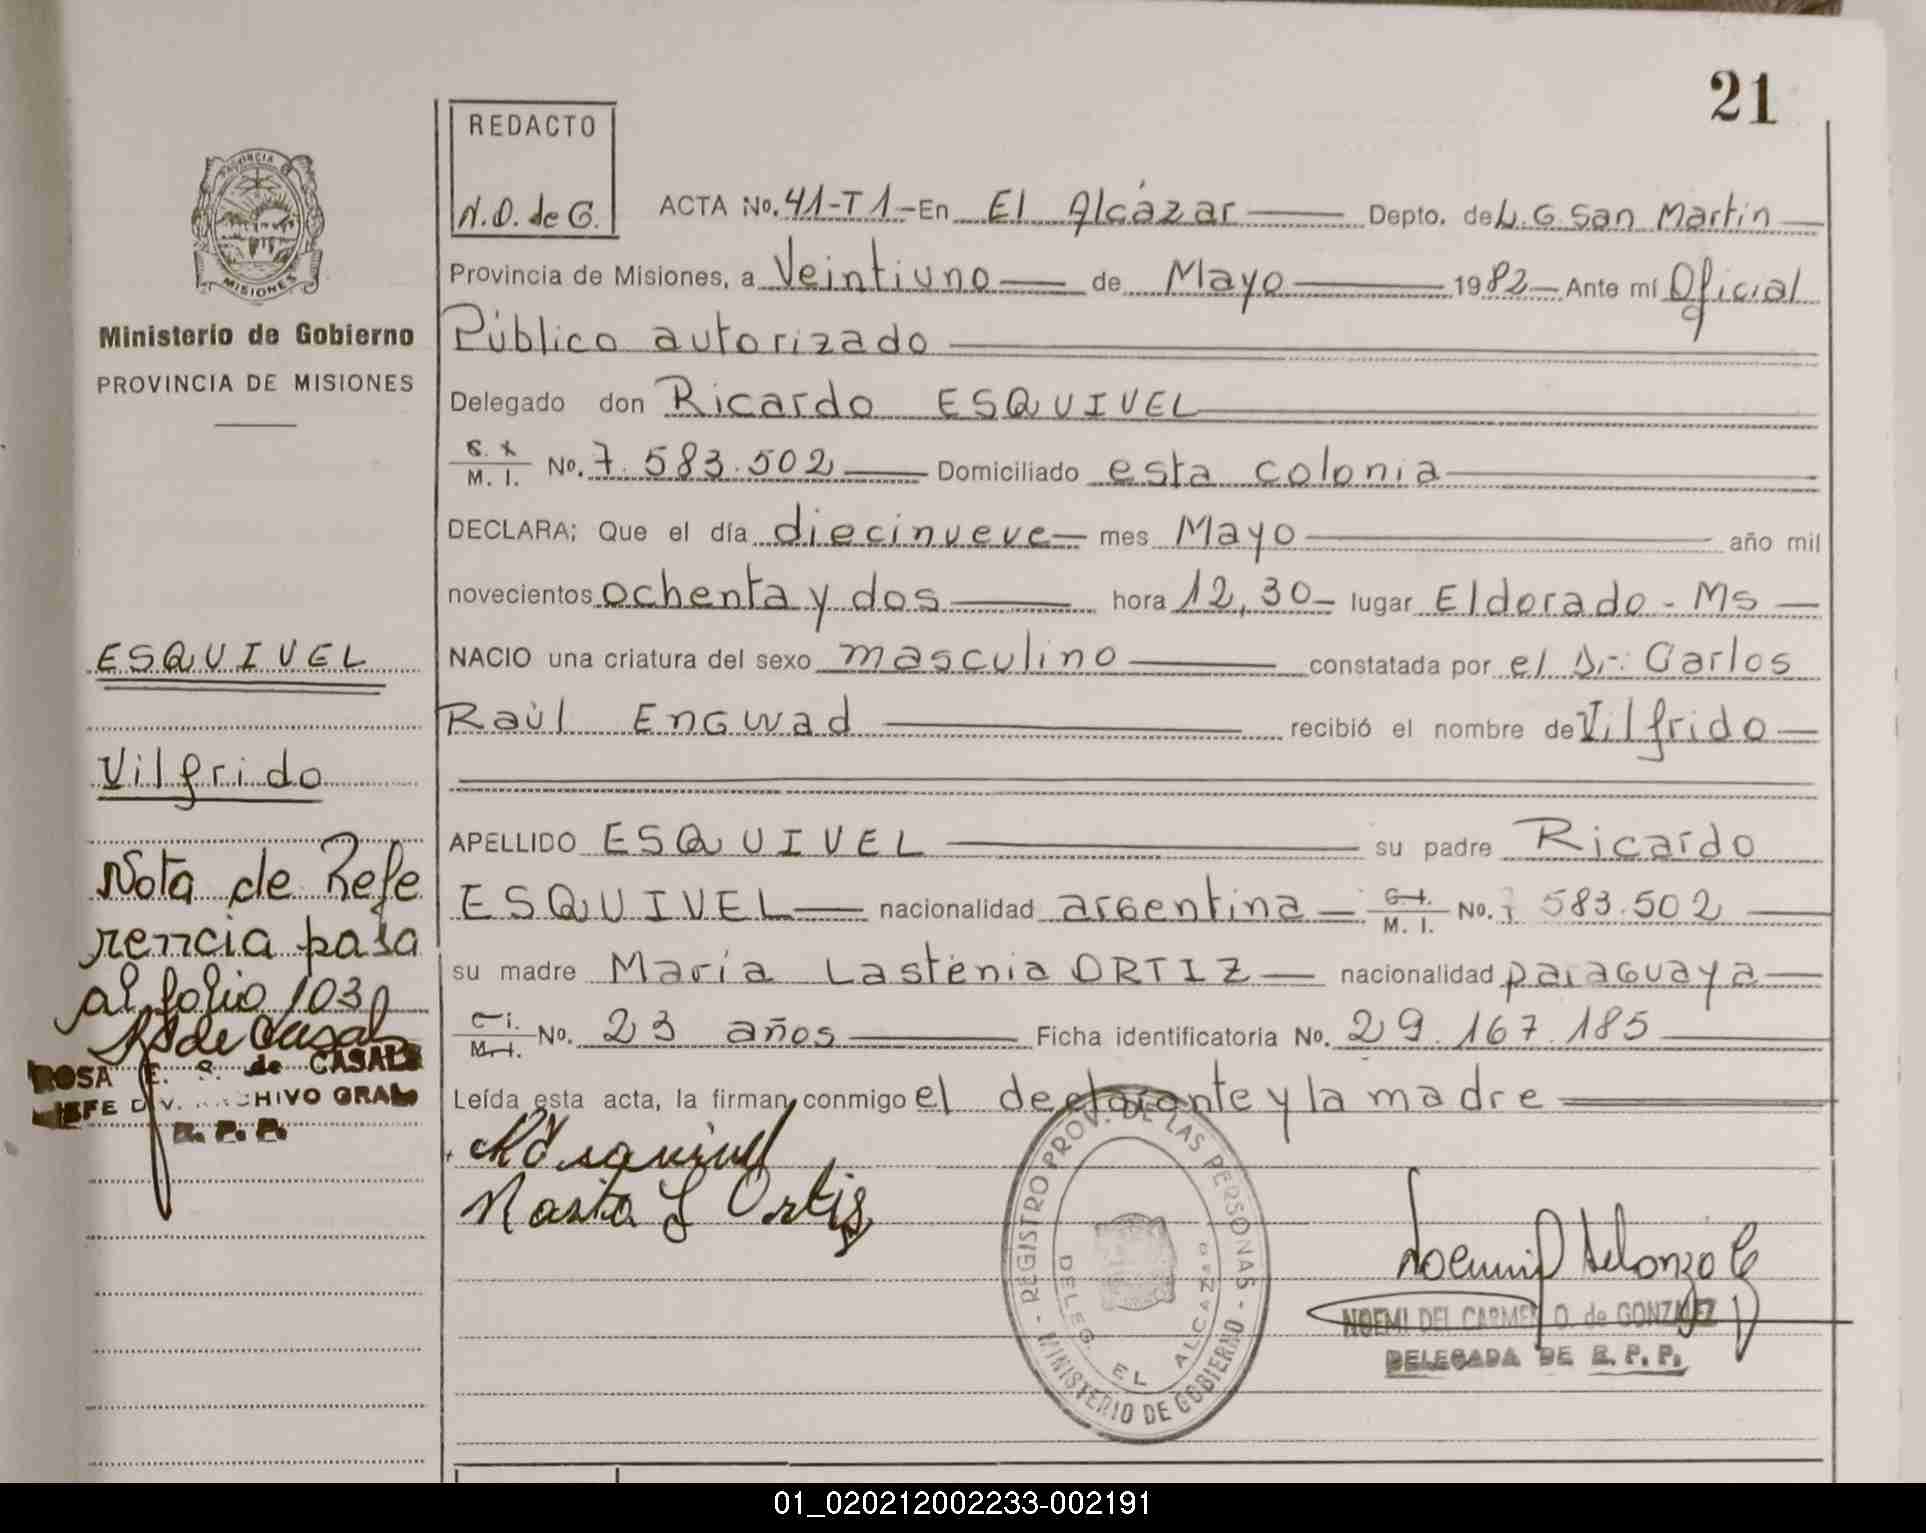 21
REDACTO
N.O. de G.
PROVINCIA
MISIONES
Ministerio de Gobierno
PROVINCIA DE MISIONES
ACTA No. 41-T1- En El Alcázar Depto. de L. G. San Martín
Provincia de Misiones, a Veintiuno de Mayo 1982 Ante mí Oficial
Público autorizado
Delegado don Ricardo ESQUIVEL
M. I. No. 7.583.502 Domiciliado esta colonia
DECLARA; Que el día diecinueve mes Mayo año mil
novecientos ochenta y dos hora 12,30 lugar Eldorado - Ms
NACIO una criatura del sexo masculino constatada por el Dr. Carlos
Raúl Engwad recibió el nombre de Vilfrido
APELLIDO ESQUIVEL su padre Ricardo
ESQUIVEL nacionalidad argentina M. I. No. 7 583.502
su madre María Lasténia ORTIZ nacionalidad paraguaya
C. I. M. I. No. 23 años Ficha identificatoria No. 29.167.185
Leída esta acta, la firman conmigo el declarante y la madre
R Esquivel
Maria L Ortiz
ESQUIVEL
Vilfrido
Nota de Refe
rencia pasa
al folio 103
RS de Casals
ROSA E. S. de CASALS
JEFE DIV. ARCHIVO GRAL
R. P. P.
REGISTRO PROV. DE LAS PERSONAS - MINISTERIO DE GOBIERNO -
DELEG. EL ALCAZAR
NOEMI DEL CARMEN O. de GONZALEZ
DELEGADA DE R. P. P.
01_020212002233-002191